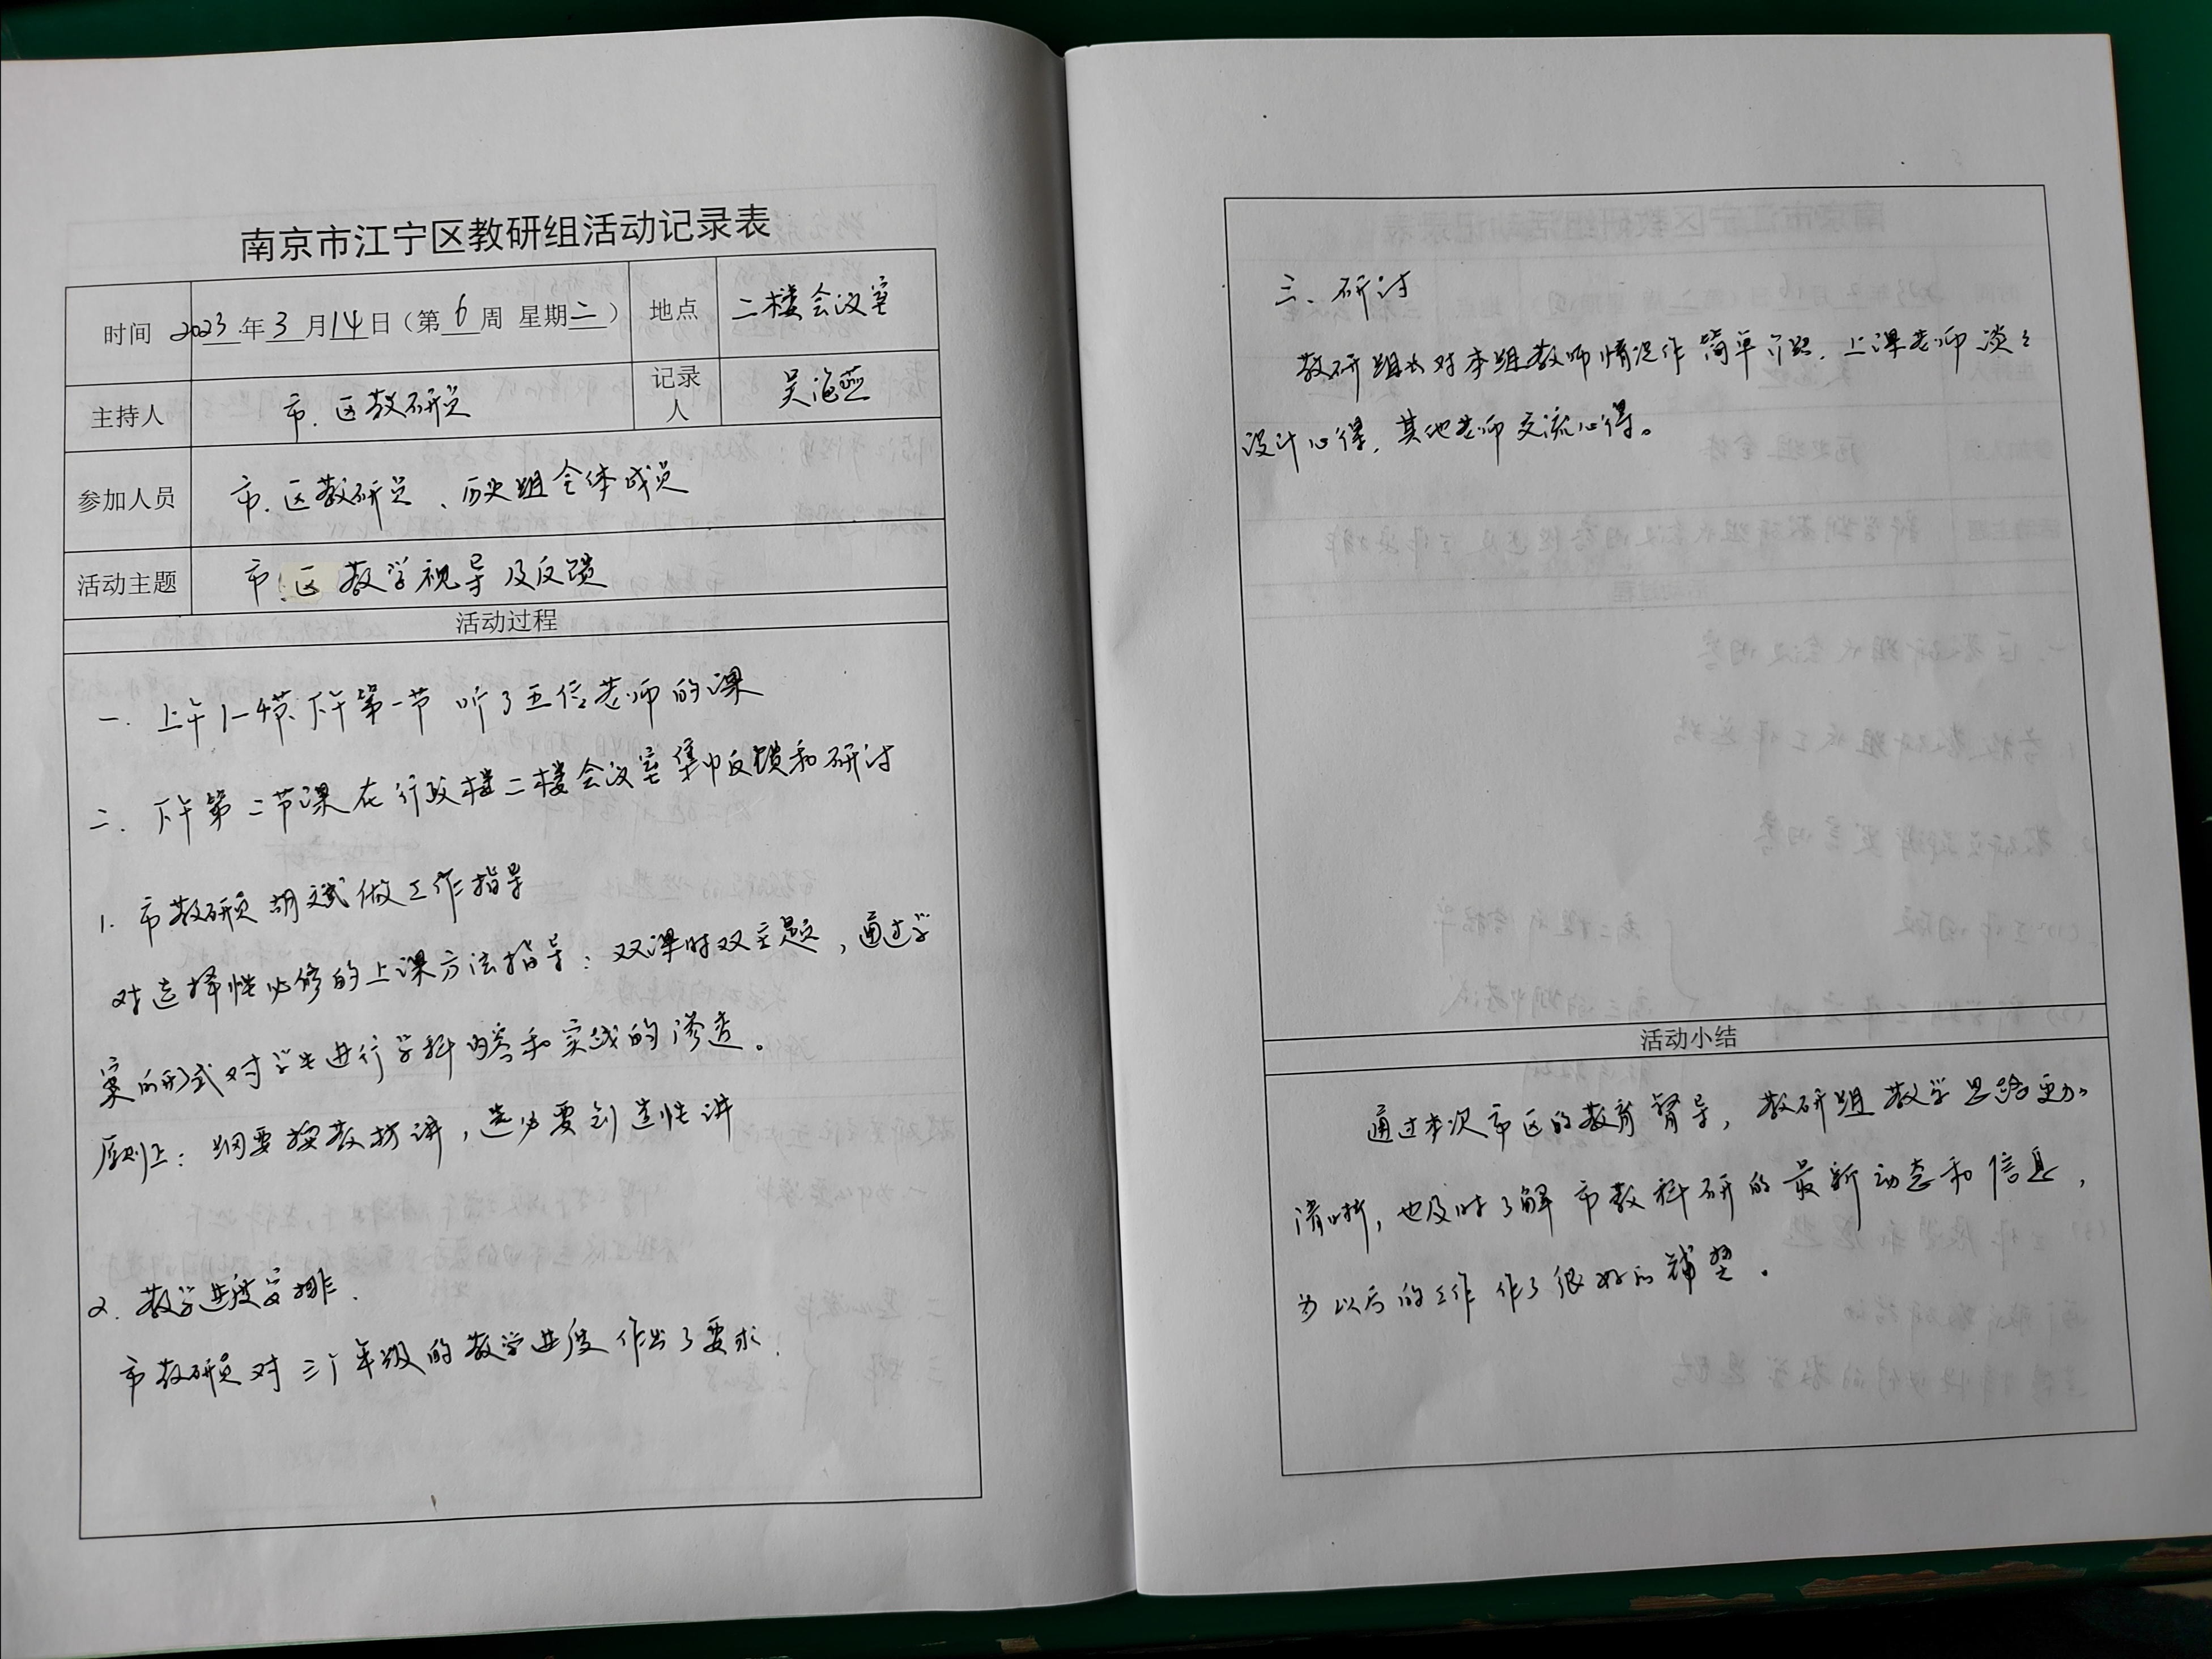 南京市江宁区教研组活动记录表
时间 2023年3月14日（第6周 星期二） 地点 二楼会议室
主持人 市、区教研员 记录人 吴
参加人员 市、区教研员、历史组全体成员
活动主题 市区教学视导及反馈
活动过程
一. 上午1-4节、下午第一节 听了五位老师的课
二. 下午第二节课在行政楼二楼会议室集中反馈和研讨
1. 市教研员胡斌做工作指导
对选择性必修的上课方法指导：双课时双主题，通过学
案的形式对学生进行学科内容和实践的渗透。
原则上：纲要按教材讲，选必要创造性讲
2. 教学进度安排.
市教研员对三个年级的教学进度作出了要求.
三、研讨
教研组长对本组教师情况作简单介绍. 上课老师谈谈
设计心得, 其他老师交流心得。
活动小结
通过本次市区的教育督导，教研组教学思路更加
清晰，也及时了解市教科研的最新动态和信息，
为以后的工作作了很好的铺垫。